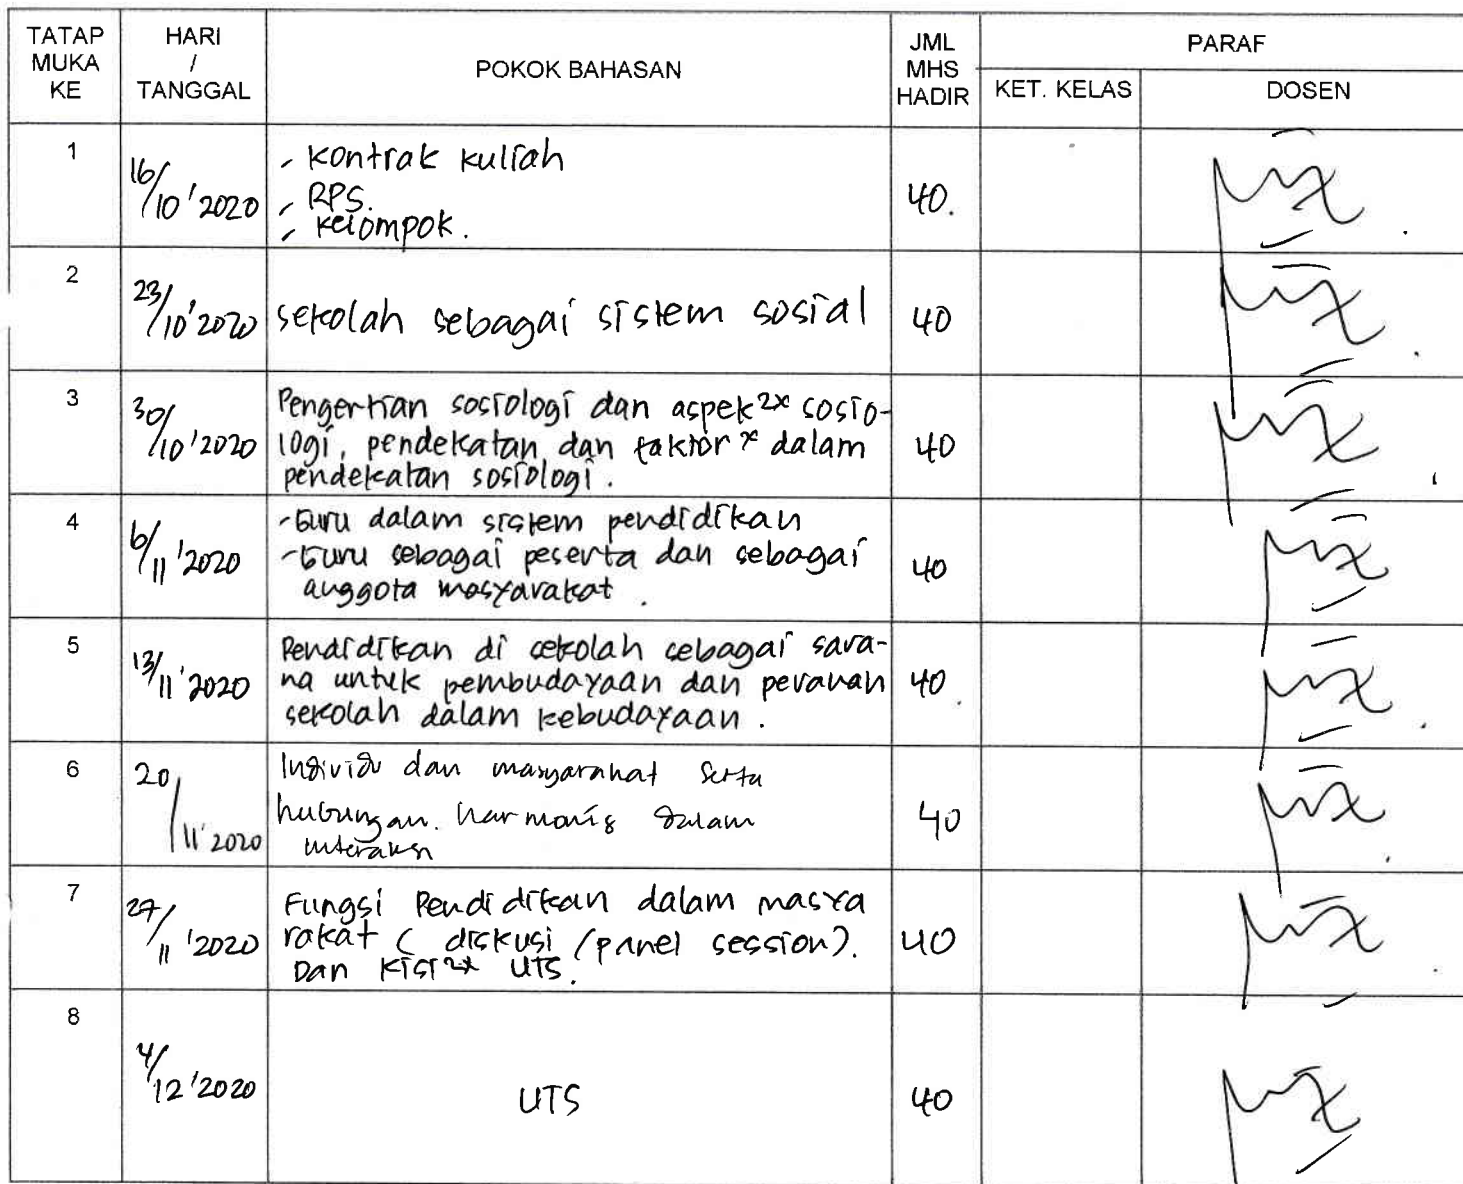 TATAP MUKA KE | HARI / TANGGAL | POKOK BAHASAN | JML MHS HADIR | PARAF
KET. KELAS | DOSEN
1 | 16/10 '2020 | - Kontrak kuliah
- RPS.
- Kelompok. | 40.
2 | 23/10 '2020 | sekolah sebagai sistem sosial | 40
3 | 30/10 '2020 | Pengertian sosiologi dan aspek2x sosio-
logi, pendekatan dan faktor x dalam
pendekatan sosiologi. | 40
4 | 6/11 '2020 | - Guru dalam sistem pendidikan
- Guru sebagai peserta dan sebagai
anggota masyarakat. | 40
5 | 13/11 '2020 | Pendidikan di sekolah sebagai sara-
na untuk pembudayaan dan peranan
sekolah dalam kebudayaan. | 40.
6 | 20/11 '2020 | Individu dan masyarakat serta
hubungan. harmonis dalam
interaksi | 40
7 | 27/11 '2020 | Fungsi Pendidikan dalam masya
rakat ( diskusi / panel session).
Dan Kisi2x UTS. | 40
8 | 4/12 '2020 | UTS | 40